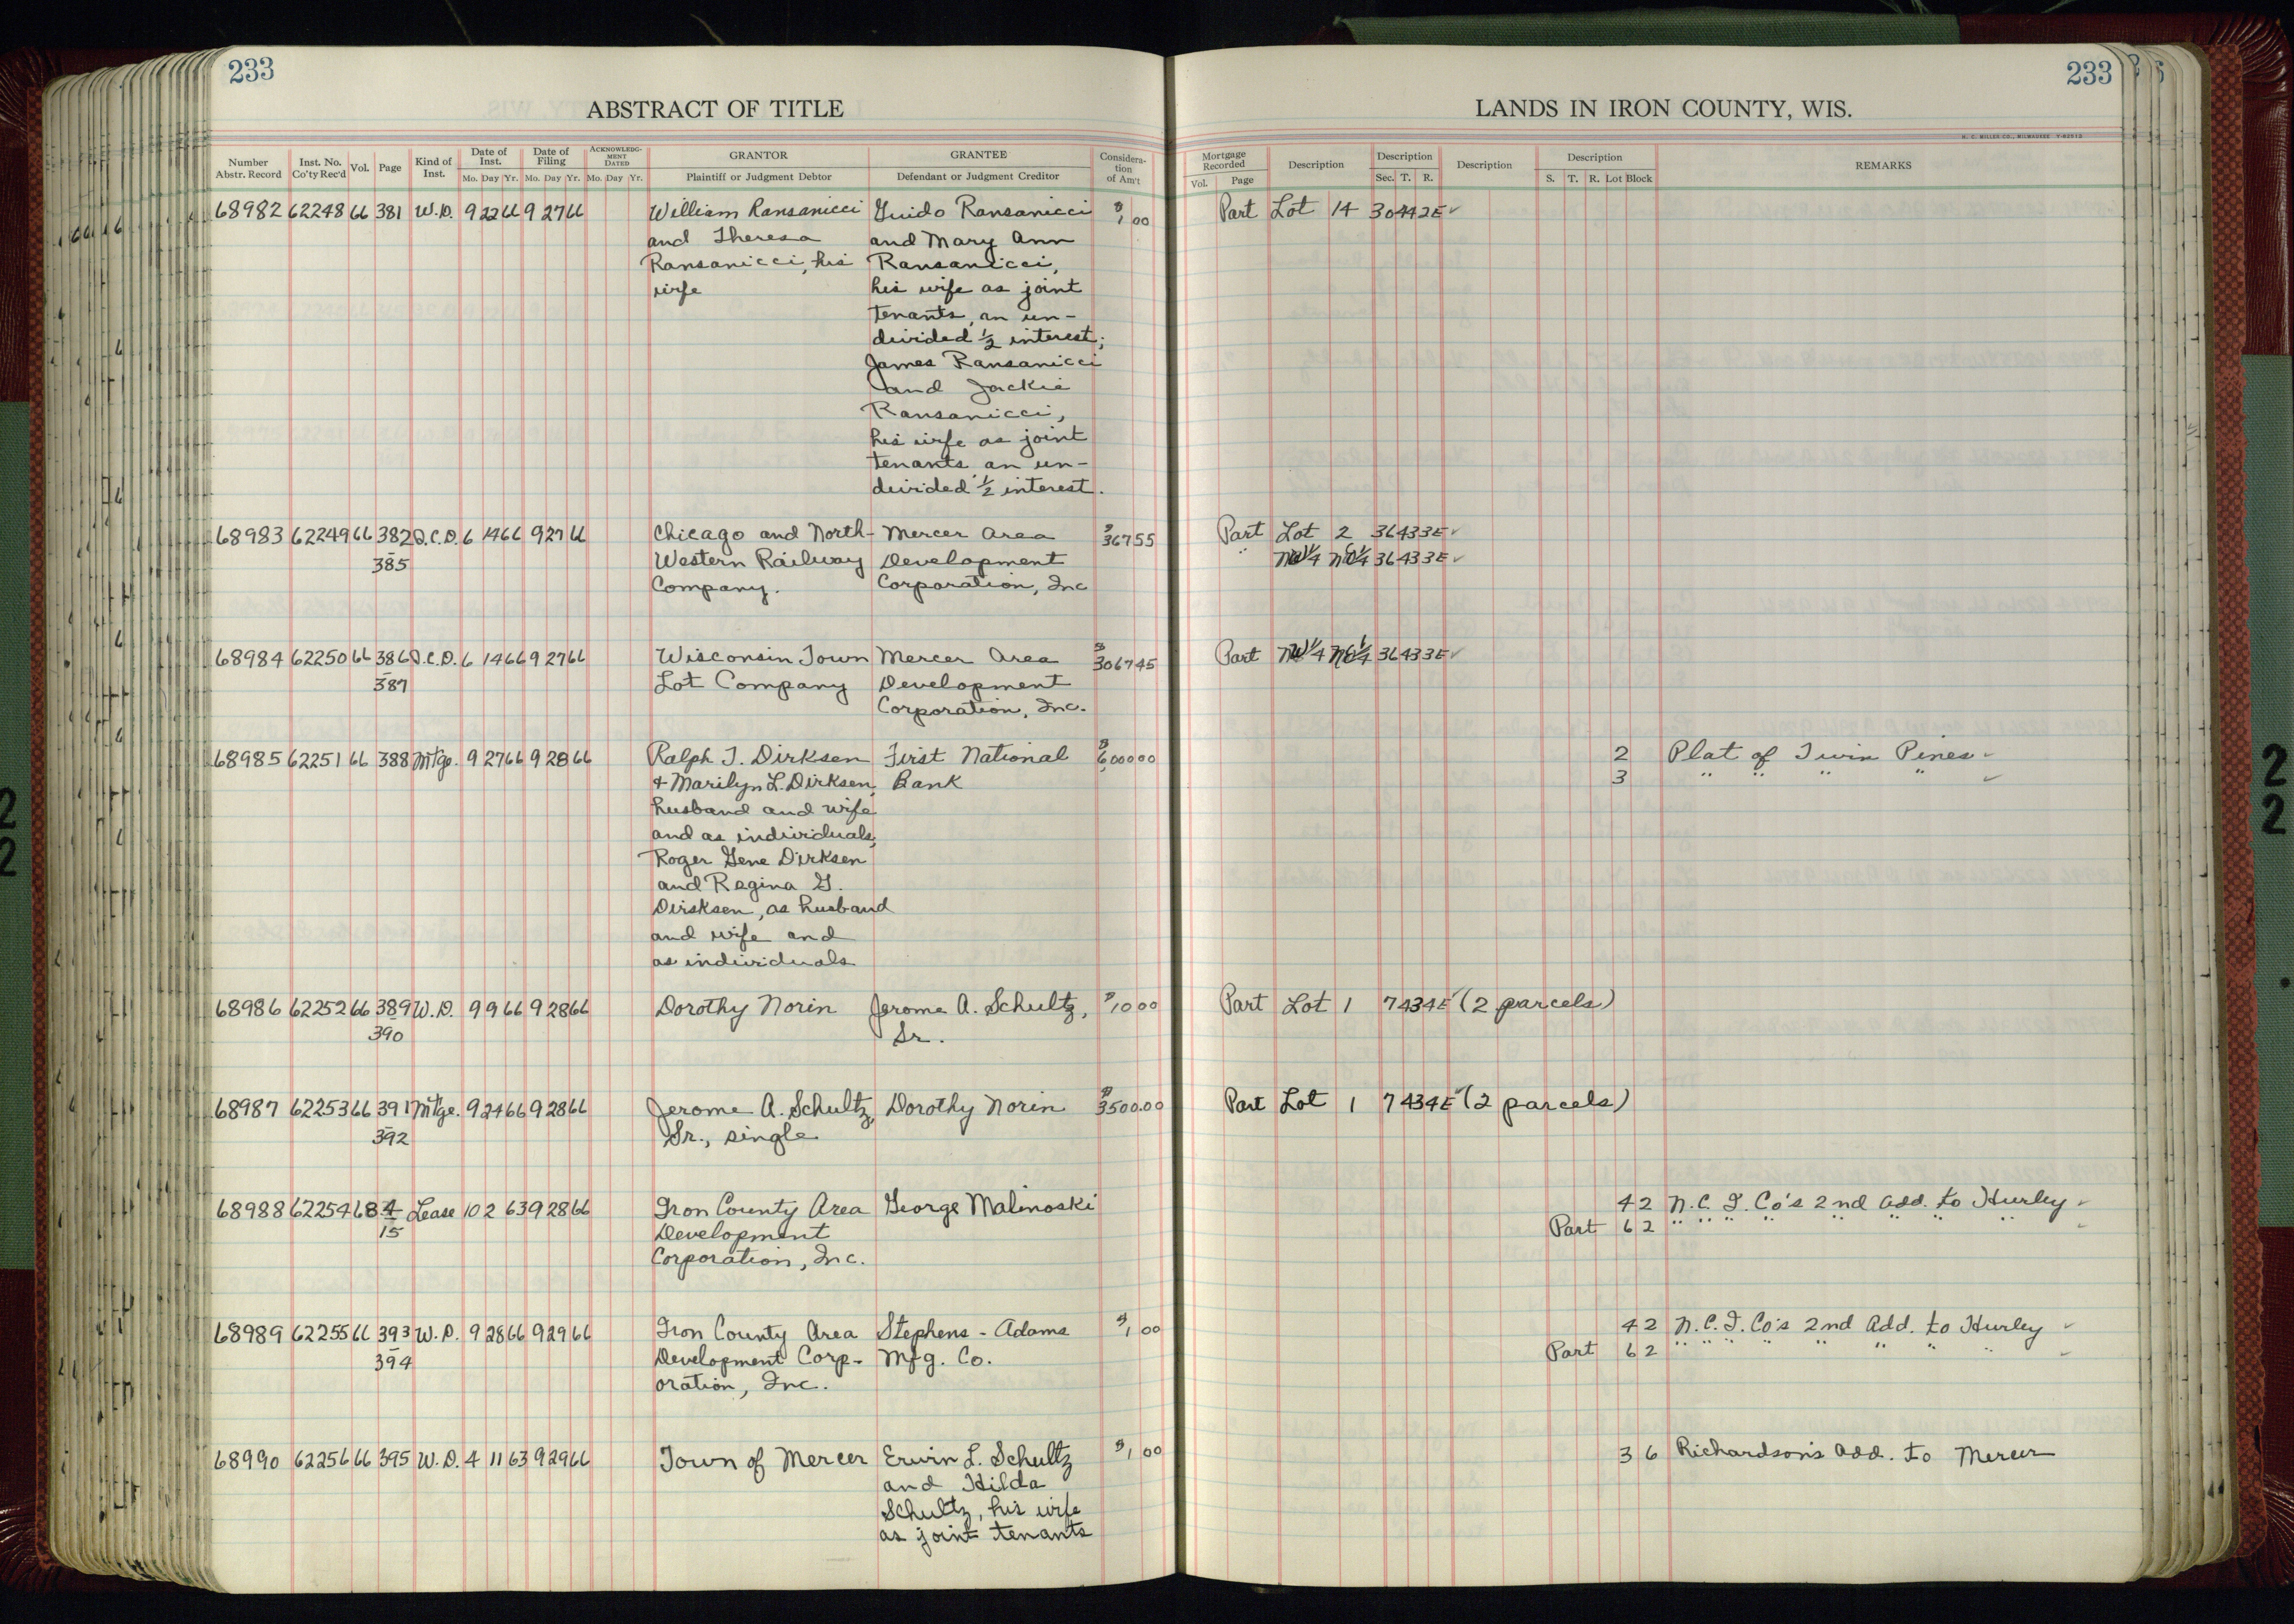 233
233
ABSTRACT OF TITLE
LANDS IN IRON COUNTY, WIS.
H. C. MILLER CO., MILWAUKEE
Number Abstr. Record | Inst. No. Co'ty Rec'd | Vol. | Page | Kind of Inst. | Date of Inst. Mo. Day Yr. | Date of Filing Mo. Day Yr. | ACKNOWLEDGMENT DATED Mo. Day Yr. | GRANTOR Plaintiff or Judgment Debtor | GRANTEE Defendant or Judgment Creditor | Consideration of Am't | Mortgage Recorded Vol. Page | Description | Description Sec. T. R. | Description | Description S. T. R. Lot Block | REMARKS
68982 62248 66 381 W.D. 9 22 66 9 27 66 William Ransanicci Guido Ransanicci $1 00 Part Lot 14 30 44 2E ✓
and Theresa and Mary Ann
Ransanicci, his Ransanicci,
wife his wife as joint
tenants, an un-
divided 1/2 interest;
James Ransanicci
and Jackie
Ransanicci,
his wife as joint
tenants an un-
divided 1/2 interest.
68983 62249 66 382 Q.C.D. 6 14 66 9 27 66 Chicago and North- Mercer Area $367 55 Part Lot 2 36 43 3E ✓
385 Western Railway Development " NW1/4 NE1/4 36 43 3E ✓
Company. Corporation, Inc
68984 62250 66 386 Q.C.D. 6 14 66 9 27 66 Wisconsin Town Mercer Area $3067 45 Part NW1/4 NE1/4 36 43 3E ✓
387 Lot Company Development
Corporation, Inc.
68985 62251 66 388 Mtge. 9 27 66 9 28 66 Ralph J. Dirksen First National $6,000 00 2 Plat of Twin Pines ✓
& Marilyn L. Dirksen, Bank 3 " " " " ✓
husband and wife
and as individuals,
Roger Gene Dirksen
and Regina G.
Dirsksen, as husband
and wife and
as individuals
68986 62252 66 389 W.D. 9 9 66 9 28 66 Dorothy Norin Jerome A. Schultz, $10 00 Part Lot 1 7 43 4E ✓ (2 parcels)
390 Sr.
68987 62253 66 391 Mtge. 9 24 66 9 28 66 Jerome A. Schultz, Dorothy Norin $3500.00 Part Lot 1 7 43 4E ✓ (2 parcels)
392 Sr., single
68988 62254 68 4 Lease 10 2 63 9 28 66 Iron County Area George Malinoski 4 2 N.C.I. Co's 2nd Add. to Hurley ✓
15 Development Part 6 2 " " " " " " " " ✓
Corporation, Inc.
68989 62255 66 393 W.D. 9 28 66 9 29 66 Iron County Area Stephens-Adams $1 00 4 2 N.C.I. Co's 2nd Add. to Hurley ✓
394 Development Corp- Mfg. Co. Part 6 2 " " " " " " " " ✓
oration, Inc.
68990 62256 66 395 W.D. 4 11 63 9 29 66 Town of Mercer Erwin L. Schultz $1 00 3 6 Richardson's Add. to Mercer
and Hilda
Schultz, his wife
as joint tenants